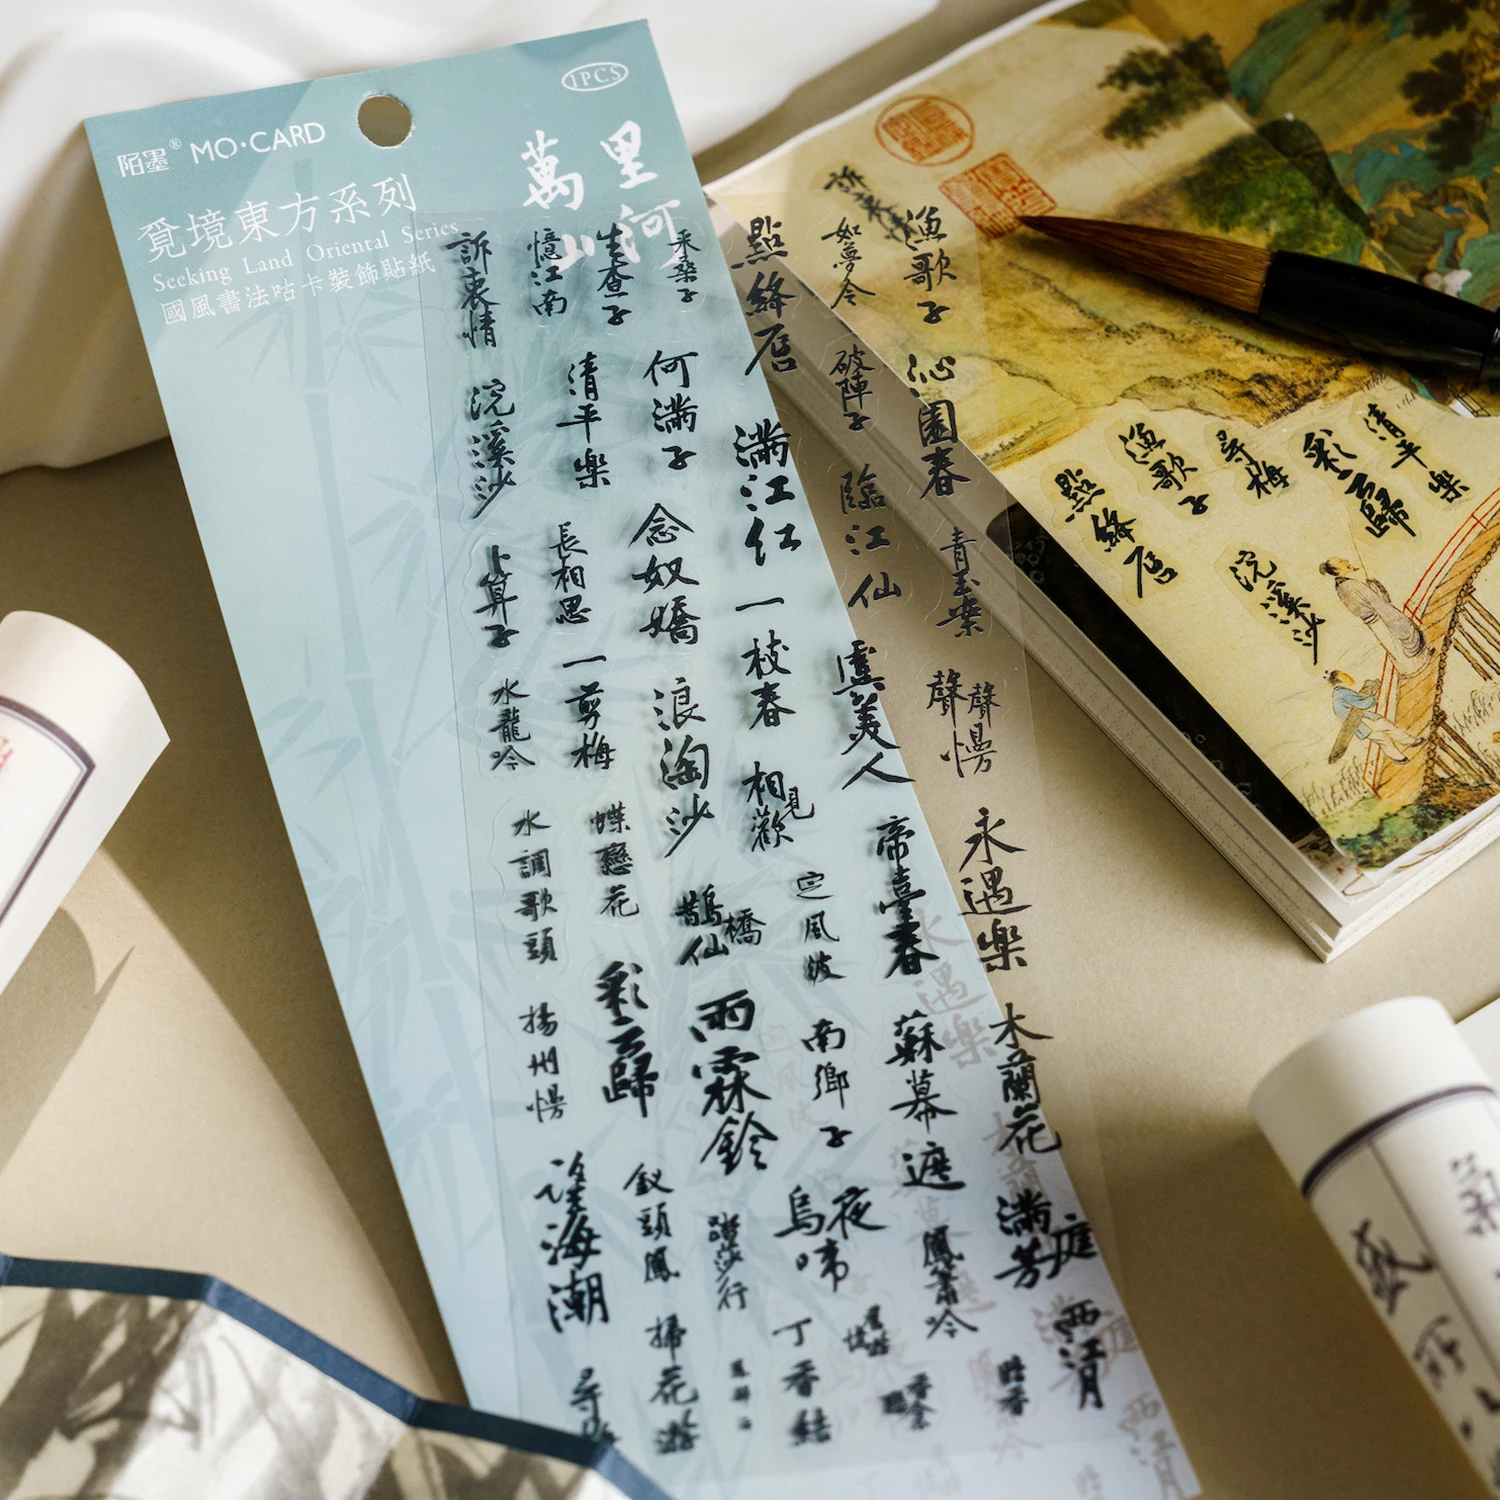 陌墨® MO·CARD
1PCS
萬里
山河
覓境東方系列
Seeking Land Oriental Series
國風書法咕卡裝飾貼紙
訴衷情
浣溪沙
卜算子
水龍吟
水調歌頭
揚州慢
望海潮
憶江南
清平樂
長相思
一剪梅
蝶戀花
彩雲歸
釵頭鳳
掃花遊
生查子
何滿子
念奴嬌
浪淘沙
鵲橋仙
雨霖鈴
踏莎行
采桑子
點絳唇
滿江红
一枝春
相見歡
定風波
南鄉子
烏夜啼
丁香結
如夢令
破陣子
臨江仙
虞美人
帝臺春
蘇幕遮
鳳簫吟
漁歌子
沁園春
青玉案
聲聲慢
永遇樂
木蘭花
滿庭芳
西江月
訴衷情
點絳唇
漁歌子
尋梅
彩雲歸
清平樂
浣溪沙